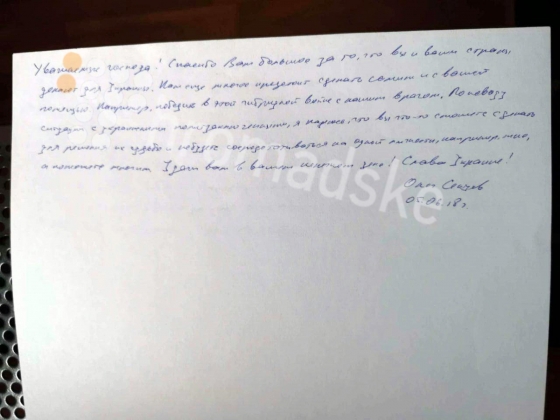 Уважаемые господа! Спасибо Вам большое за то, что вы и ваши страны
делают для Украины. Нам еще многое предстоит сделать самим и с вашей
помощью. Например, победив в этой гибридной войне с нашим врагом.
ситуации с украинскими политзаключенными, я надеюсь, что вы что-то сможете сделать
для решения не надо сосредотачиваться на одной личности, например, мне,
а помогите многим. Удачи вам в вашем деле! Слава Украине!
Олег Сенцов
05.06.18 г.
hromadske